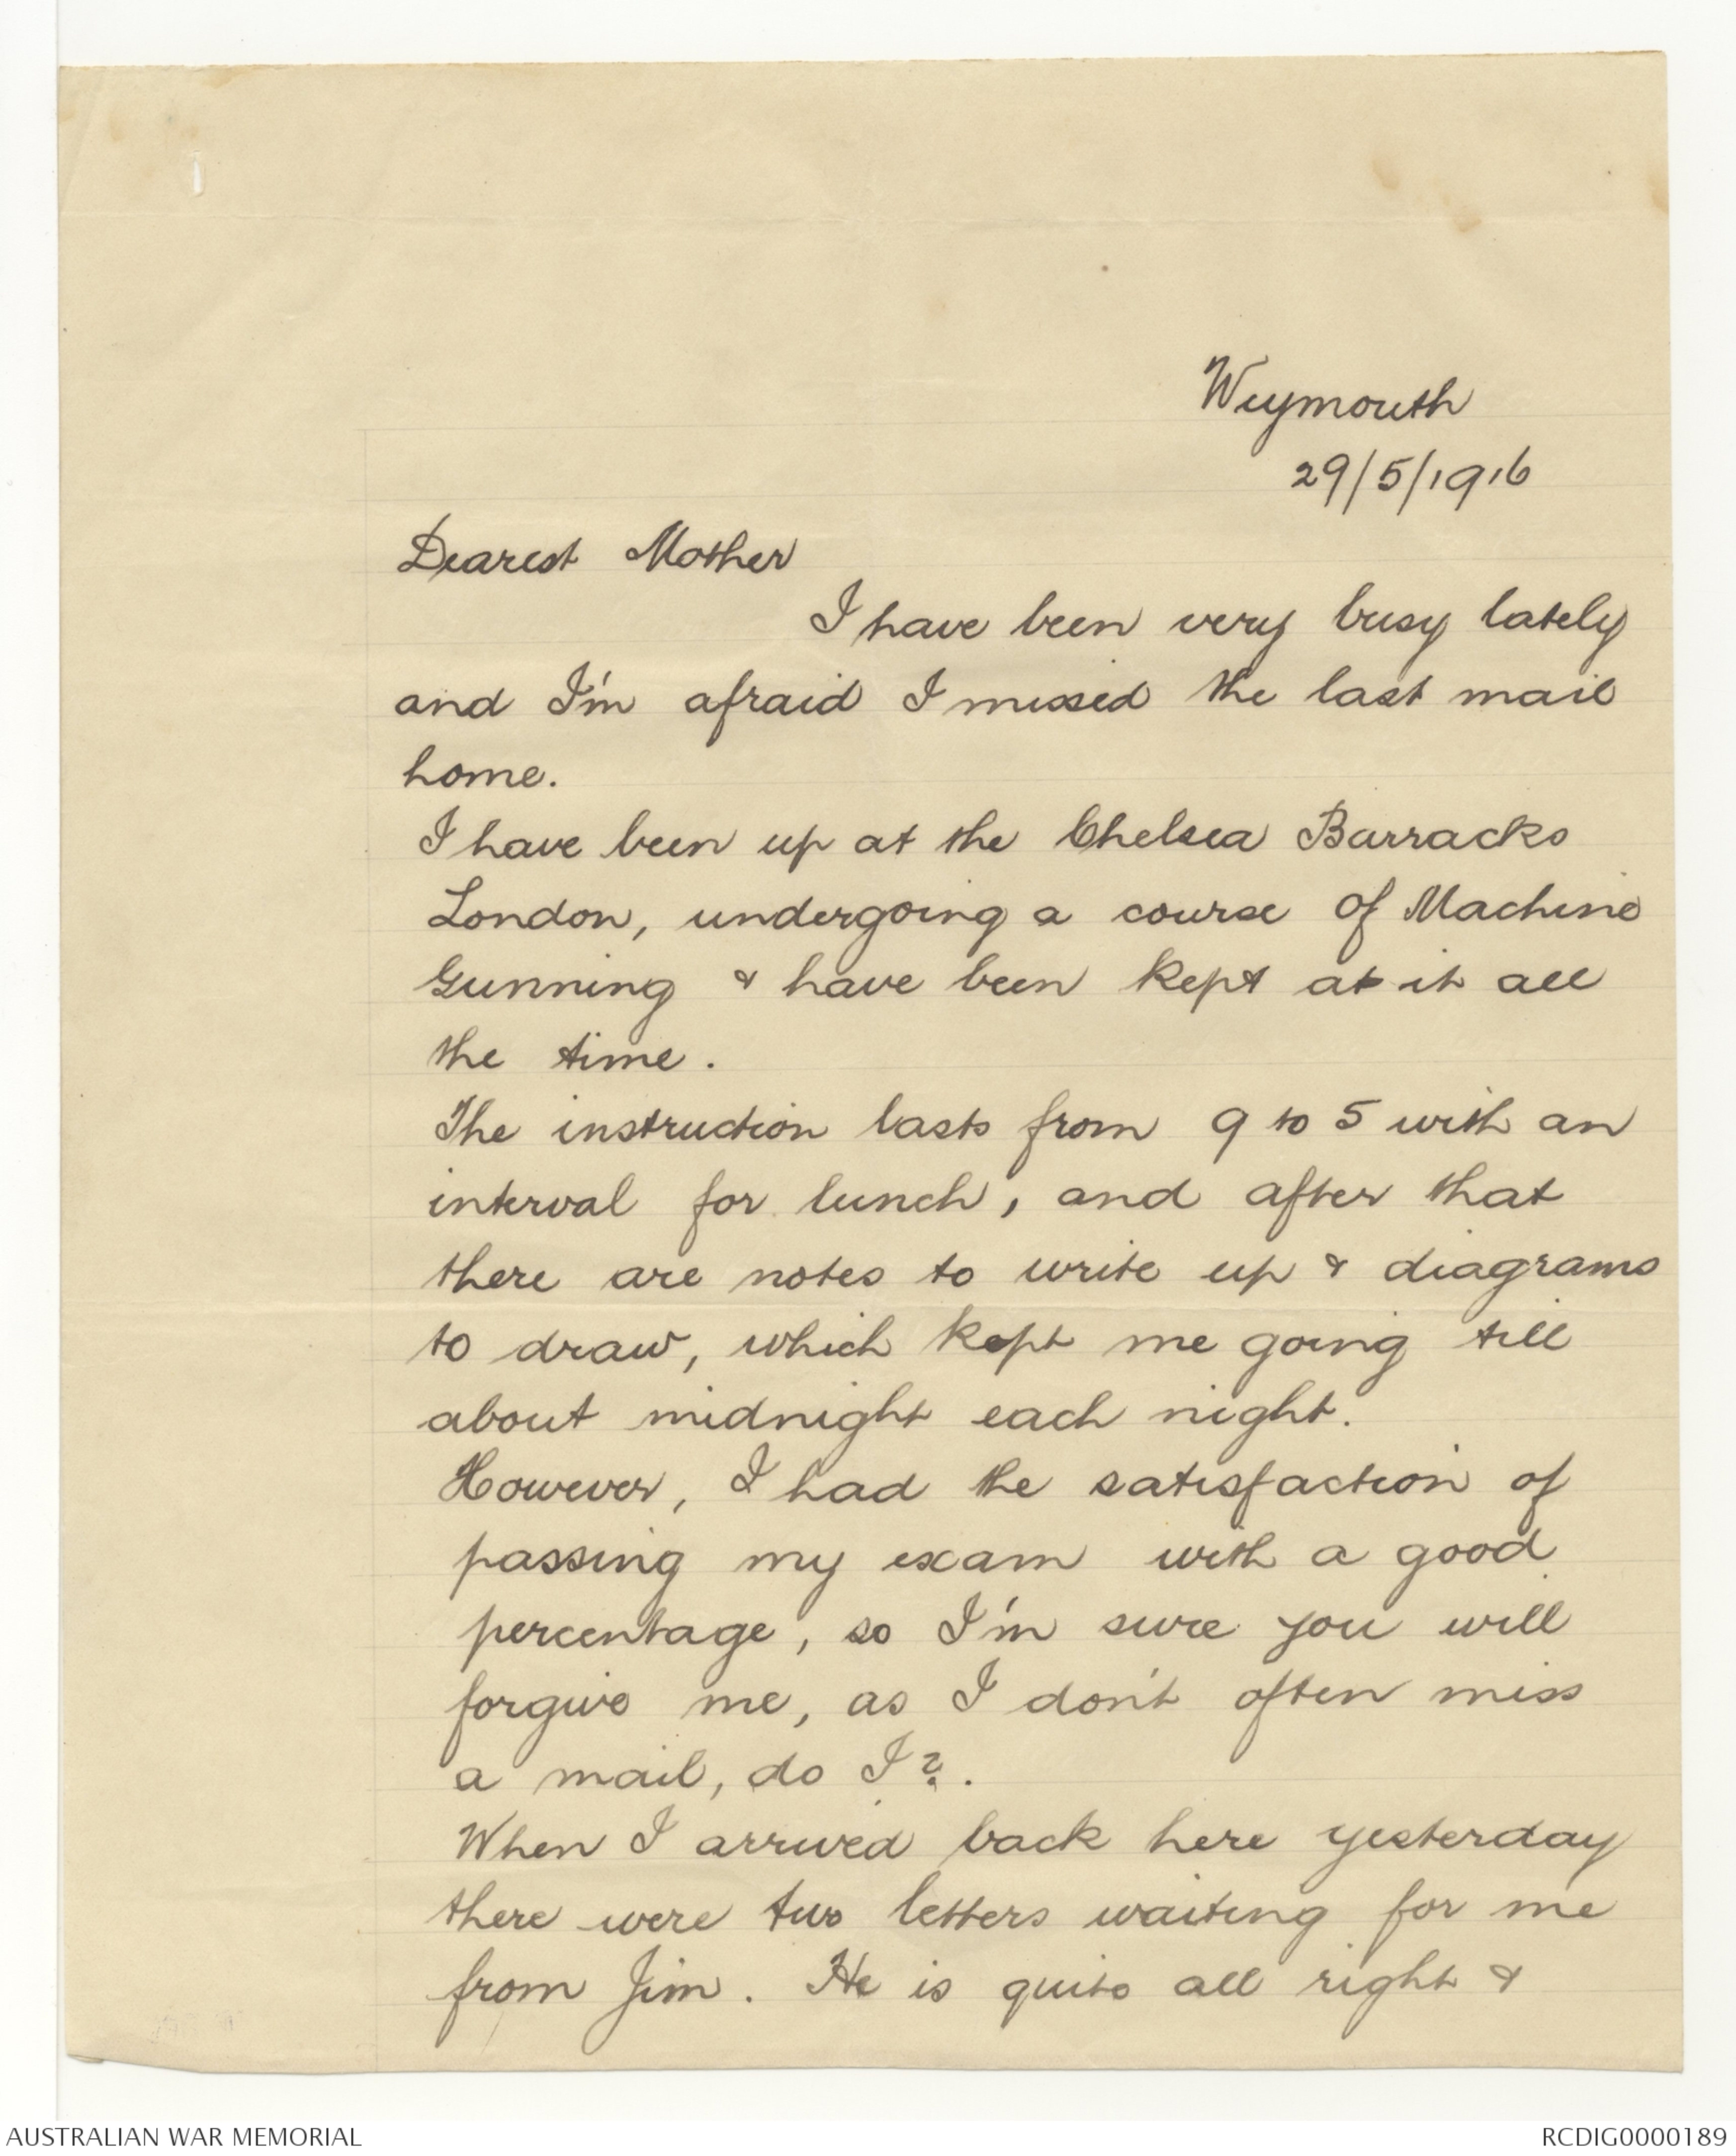 Weymouth
29/5/1916
Dearest Mother
I have been very busy lately
and I'm afraid I missed the last mail
home.
I have been up at the Chelsea Barracks
London, undergoing a course of Machine
Gunning & have been kept at it all
the time.
The instruction lasts from 9 to 5 with an
interval for lunch, and after that
there are notes to write up & diagrams
to draw, which kept me going till
about midnight each night.
However, I had the satisfaction of
passing my exam with a good
percentage, so I'm sure you will
forgive me, as I don't often miss
a mail, do I?.
When I arrived back here yesterday
there were two letters waiting for me
from Jim. He is quite all right &
AUSTRALIAN WAR MEMORIAL
RCDIG0000189